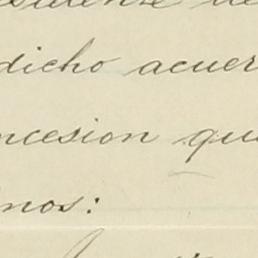 dicho acuer
ncesion que
nos: